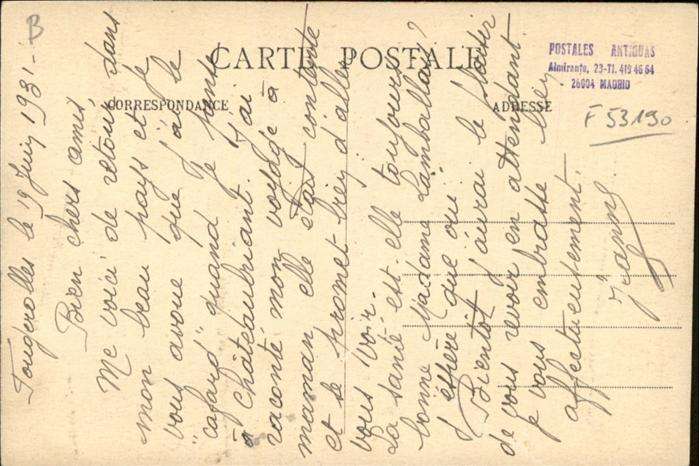 B
CARTE POSTALE
CORRESPONDANCE
ADRESSE
POSTALES ANTIGUAS
Almirante, 23-Tl. 419 46 64
28004 MADRID
F 53190
Fougerolles le 19 Juin 1931.
Bien chers amis,
Me voici de retour dans
mon beau pays et je
vous avoue que j'ai le
"cafard" quand je pense
à Châteaubriant. J'ai
raconté mon voyage à
maman elle était contente
et se promet bien d'aller
vous voir.
La santé est elle toujours
bonne Madame Lamballais?
J'espère que oui.
Bientôt j'aurai le plaisir
de vous revoir en attendant
je vous embrasse bien
affectueusement.
Jeanne